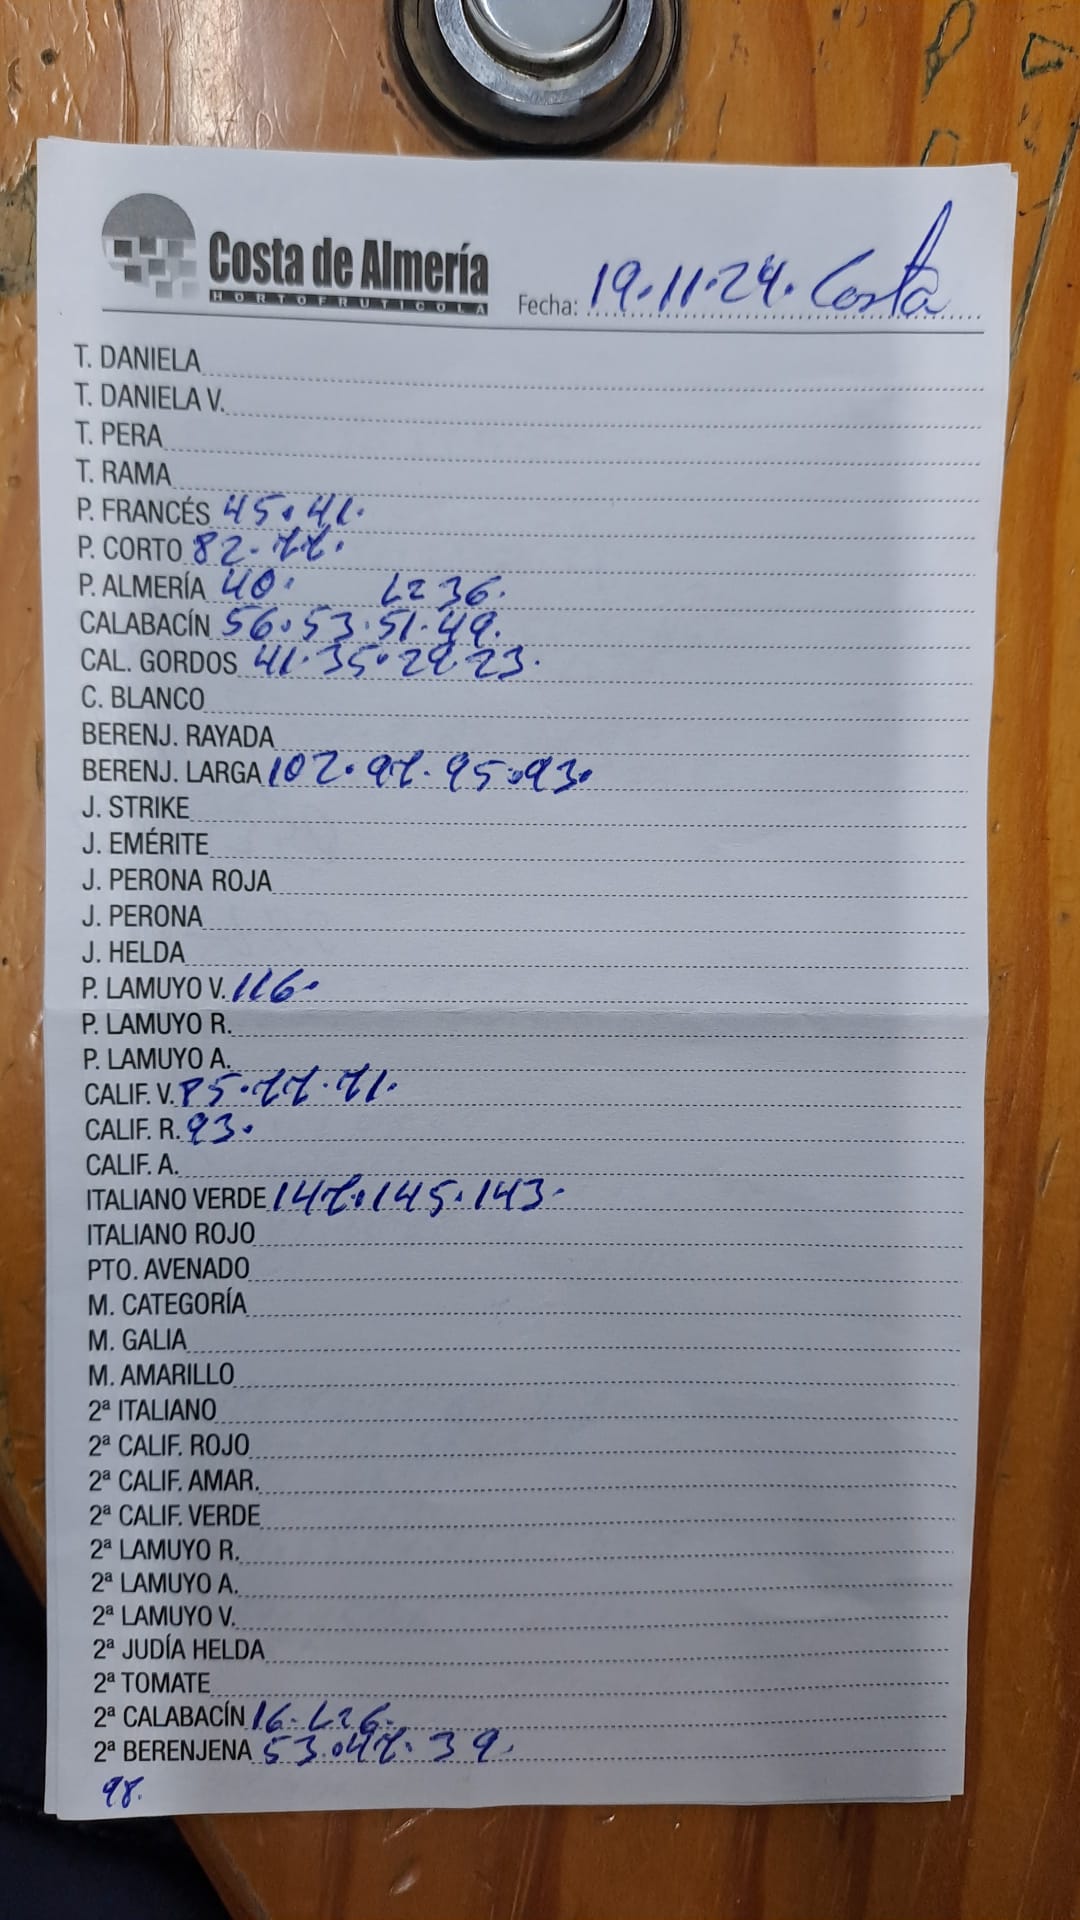 Costa de Almería
HORTOFRUTICOLA
Fecha: 19.11.24. Costa
T. DANIELA
T. DANIELA V.
T. PERA
T. RAMA
P. FRANCÉS 45.41.
P. CORTO 82.77.
P. ALMERÍA 40. L236.
CALABACÍN 56.53.51.49.
CAL. GORDOS 41.35.29.23.
C. BLANCO
BERENJ. RAYADA
BERENJ. LARGA 102.97.95.93.
J. STRIKE
J. EMÉRITE
J. PERONA ROJA
J. PERONA
J. HELDA
P. LAMUYO V. 116.
P. LAMUYO R.
P. LAMUYO A.
CALIF. V. 85.77.71.
CALIF. R. 93.
CALIF. A.
ITALIANO VERDE 147.145.143.
ITALIANO ROJO
PTO. AVENADO
M. CATEGORÍA
M. GALIA
M. AMARILLO
2ª ITALIANO
2ª CALIF. ROJO
2ª CALIF. AMAR.
2ª CALIF. VERDE
2ª LAMUYO R.
2ª LAMUYO A.
2ª LAMUYO V.
2ª JUDÍA HELDA
2ª TOMATE
2ª CALABACÍN 16.
2ª BERENJENA 53.47.39.
98.